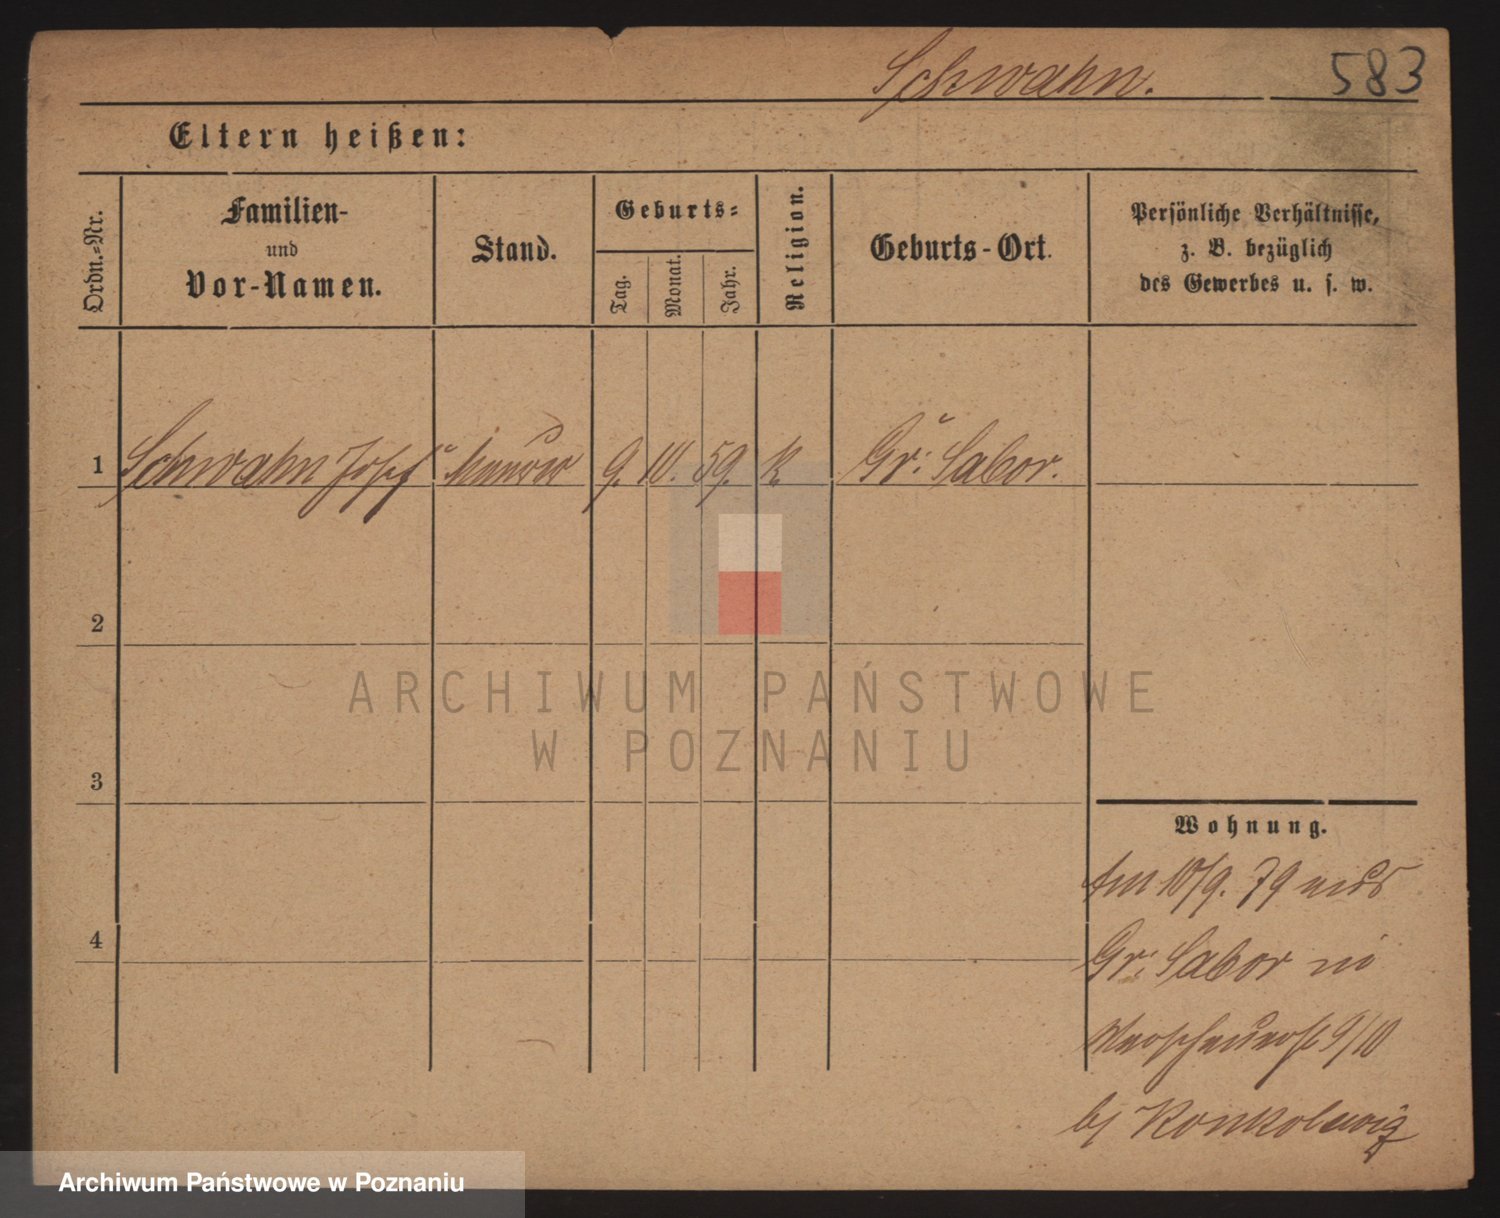 Schwahn.
583
Eltern heißen:
Ordn.-Nr.
Familien-
und
Vor-Namen.
Stand.
Geburts-
Tag.
Monat.
Jahr.
Religion.
Geburts-Ort.
Persönliche Verhältnisse,
z. B. bezüglich
des Gewerbes u. s. w.
1 Schwahn Josef Maurer 9. 10. 59. K Gr: Sabor.
2
3
4
ARCHIWUM PAŃSTWOWE
W POZNANIU
Wohnung.
Am 10/9. 79 aus
Gr: Sabor in
9/10
bj
Archiwum Państwowe w Poznaniu